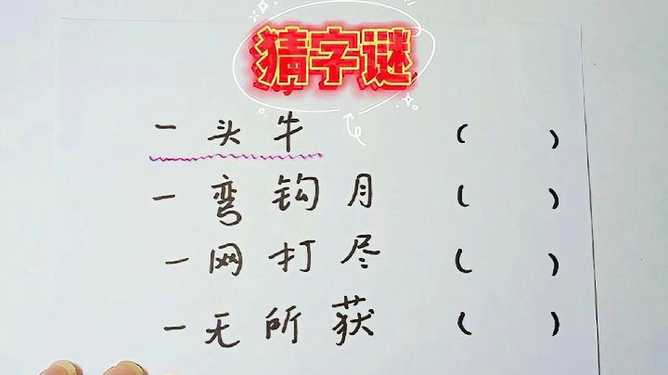 猜字谜
一头牛 ( )
一弯钩月 ( )
一网打尽 ( )
一无所获 ( )